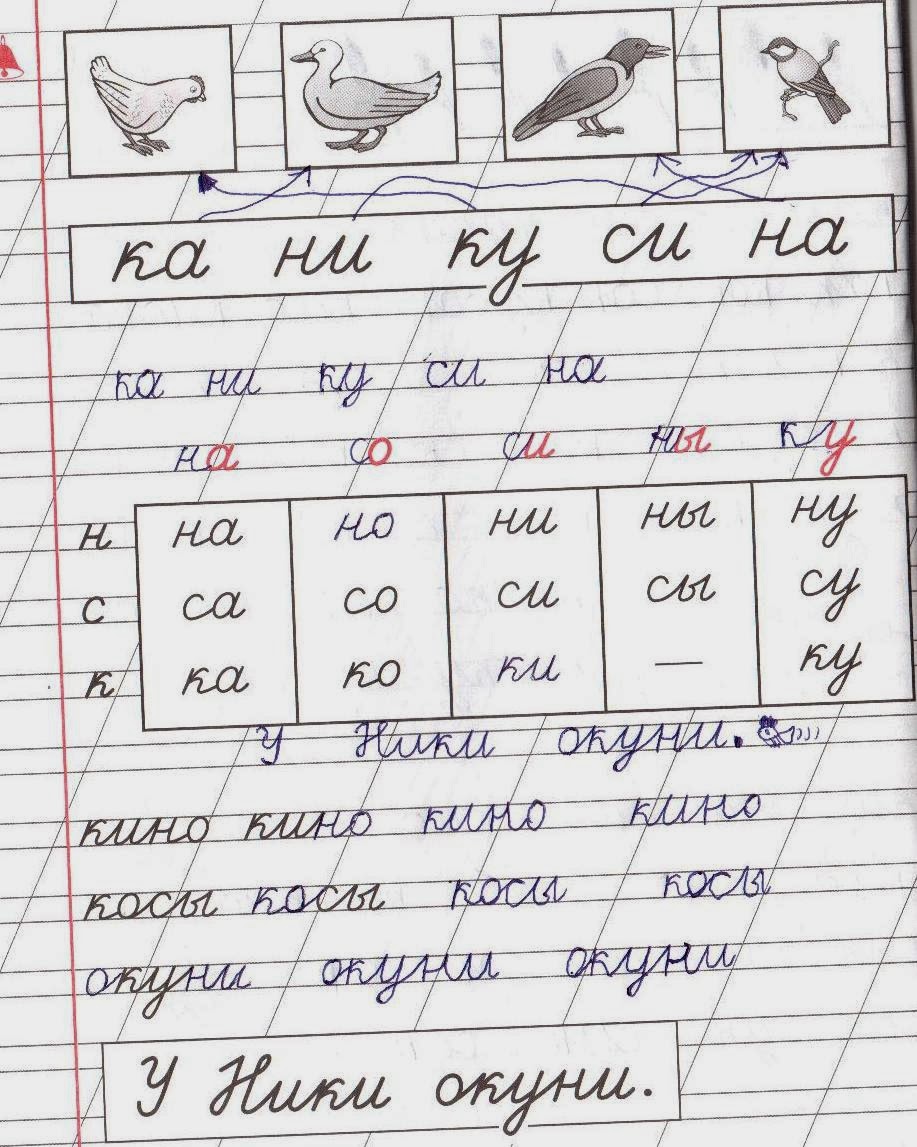 ка ни ку си на
ка ни ку си на
на со си ны ку
н на но ни ны ну
с са со си сы су
к ка ко ки — ку
У Ники окуни.
кино кино кино кино
косы косы косы косы
окуни окуни окуни
У Ники окуни.